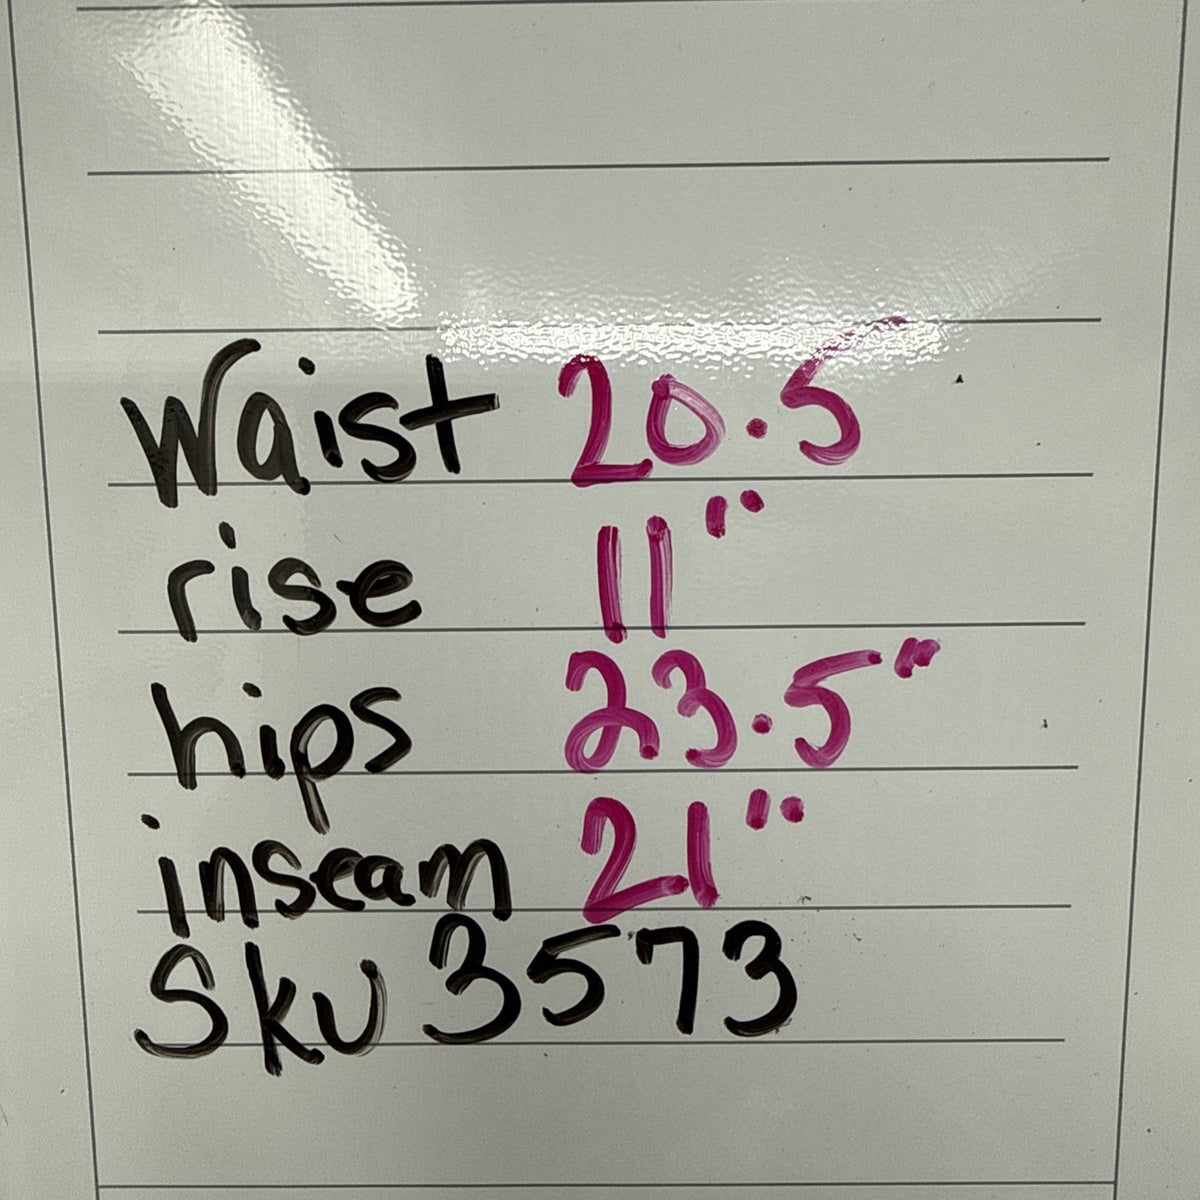 Waist 20.5
rise 11"
hips 23.5"
inseam 21"
Sku 3573